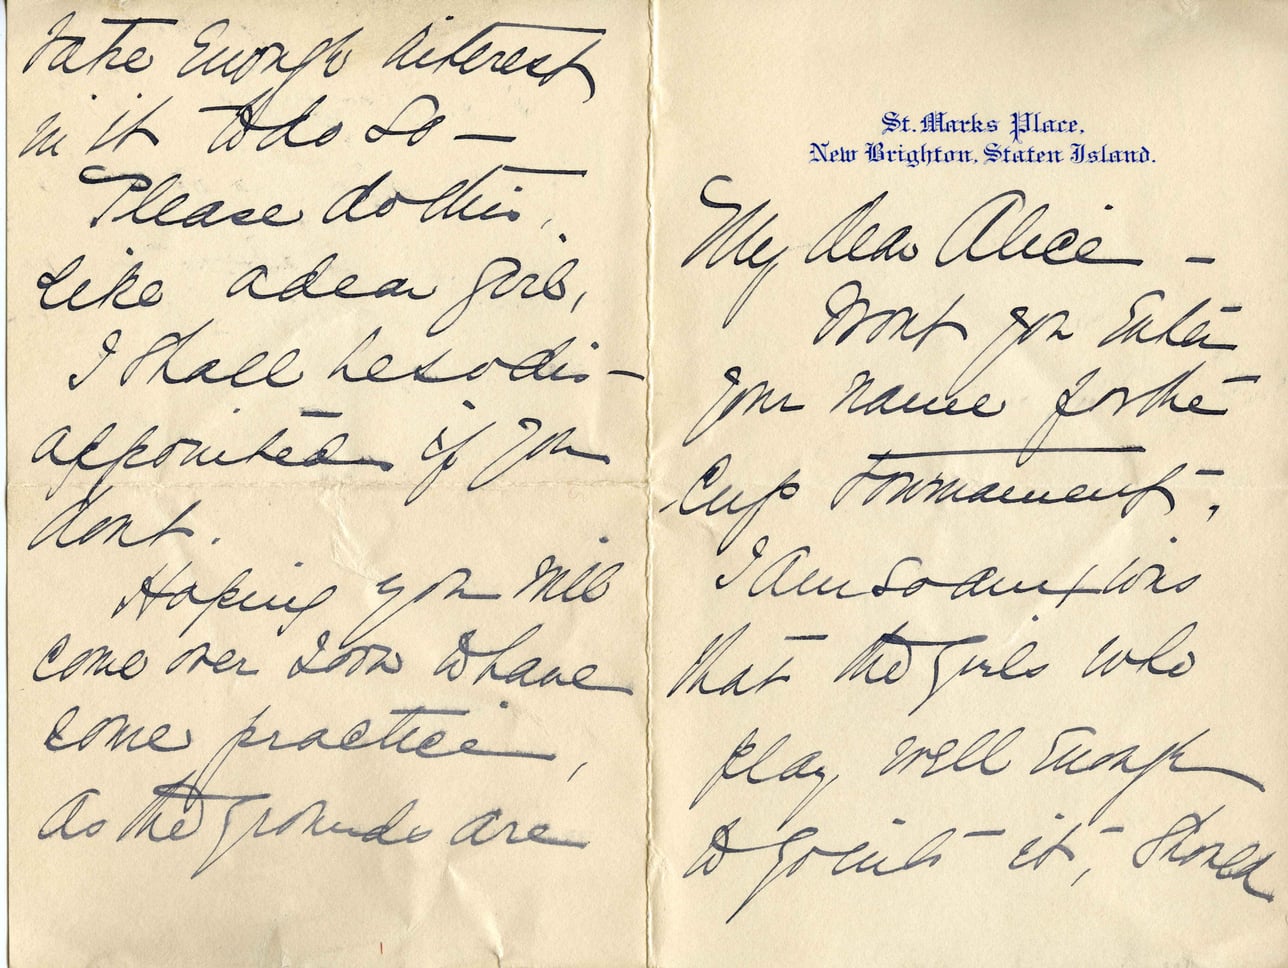 St. Marks Place,
New Brighton, Staten Island.
My dear Alice –
Wont you Enter
your name for the
Cup Tournament,
I am so anxious
that the girls who
play well Enough
to go into it, Should
take Enough interest
in it to do So –
Please do this,
Like a dear girl,
I Shall be so dis-
appointed if you
dont.
Hoping you will
come over Soon to have
some practice,
as the grounds are